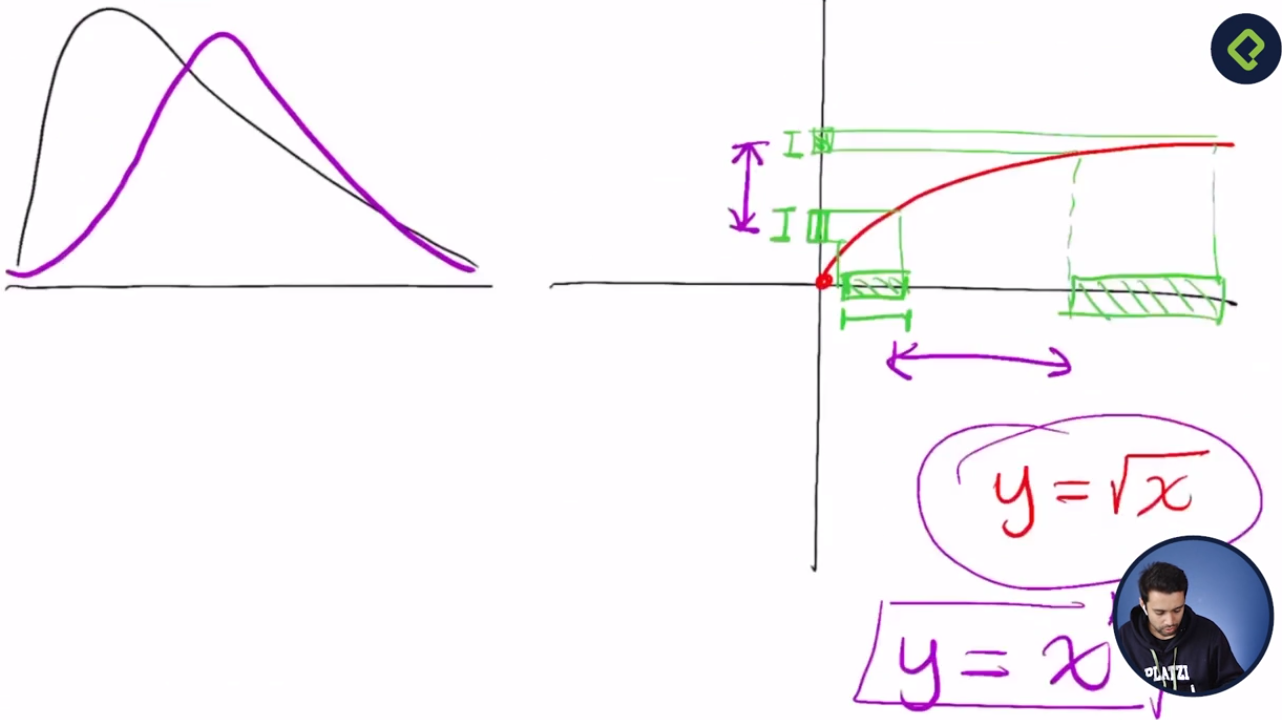 y = √x
y = x
PLATZI